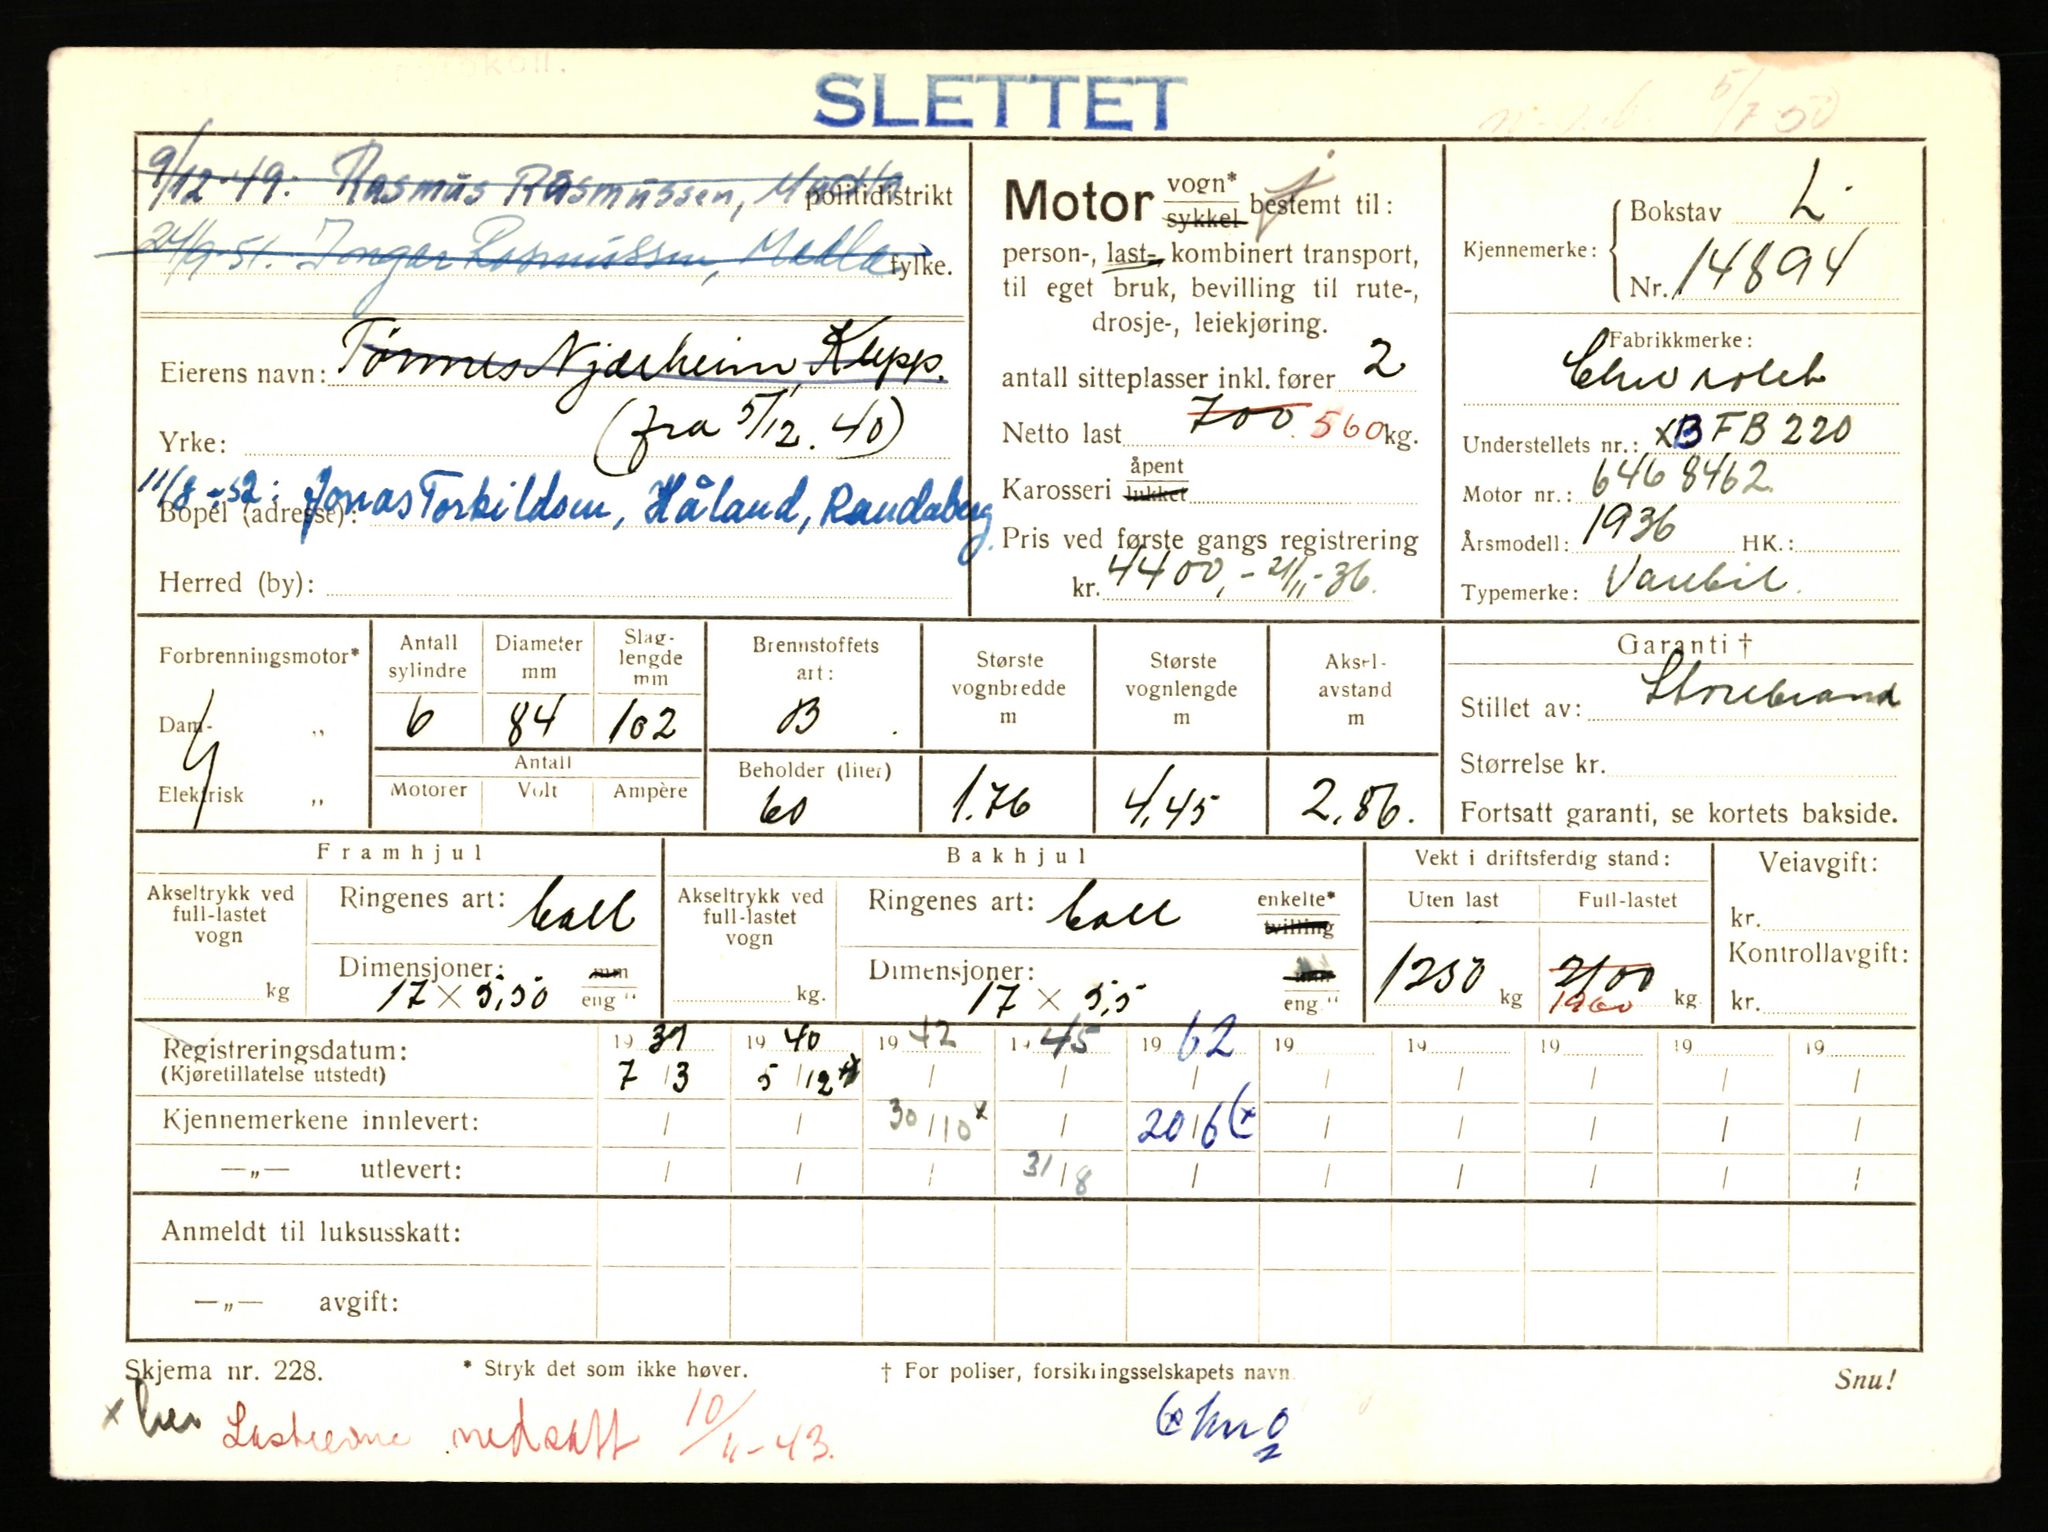 SLETTET
5/7 50
9/12-49: Rasmus Rasmussen, Madla politidistrikt
Ingar Rasmussen, Madla fylke.
Eierens navn: Tønnes Njærheim, Klepp.
Yrke: (fra 5/12. 40)
11/8-52: Jonas Torkildsen, Håland, Randaberg.
Bopel (adresse):
Herred (by):
Motor vogn* sykkel bestemt til:
person-, last-, kombinert transport,
til eget bruk, bevilling til rute-,
drosje-, leiekjøring.
antall sitteplasser inkl. fører 2
Netto last 700 560 kg.
Karosseri åpent lukket
Pris ved første gangs registrering
kr. 4400,- 21/11-36.
Kjennemerke: Bokstav L.
Nr. 14894
Fabrikkmerke:
Chevrolet
Understellets nr.: XB FB 220
Motor nr.: 6468462
Årsmodell: 1936 HK.:
Typemerke: Varebil.
Forbrenningsmotor*
Dam- „
Elektrisk „
Antall sylindre 6
Diameter mm 84
Slaglengde mm 102
Antall
Motorer Volt Ampère
Brennstoffets art: B
Beholder (liter) 60
Største vognbredde m 1.76
Største vognlengde m 4,45
Akselavstand m 2,86.
Garanti †
Stillet av: Storebrand
Størrelse kr.
Fortsatt garanti, se kortets bakside.
Framhjul
Akseltrykk ved full-lastet vogn kg
Ringenes art: ball
Dimensjoner: mm
17 × 5,50 eng "
Bakhjul
Akseltrykk ved full-lastet vogn kg.
Ringenes art: ball enkelte* tvilling
Dimensjoner: mm
17 × 5,5 eng "
Vekt i driftsferdig stand:
Uten last Full-lastet
1250 kg 2100 1960 kg
Veiavgift:
kr.
Kontrollavgift:
kr.
Registreringsdatum: 1937 1940 1942 1945 1962 19 19 19 19 19
(Kjøretillatelse utstedt) 7/3 5/12 / / / / / / / /
Kjennemerkene innlevert: / / 30/10x / 20/6(x / / / / /
—„— utlevert: / / / 31/8 / / / / / /
Anmeldt til luksusskatt:
—„— avgift:
Skjema nr. 228. * Stryk det som ikke høver. † For poliser, forsikringsselskapets navn. Snu!
x Lasteevne nedsatt 10/11-43.